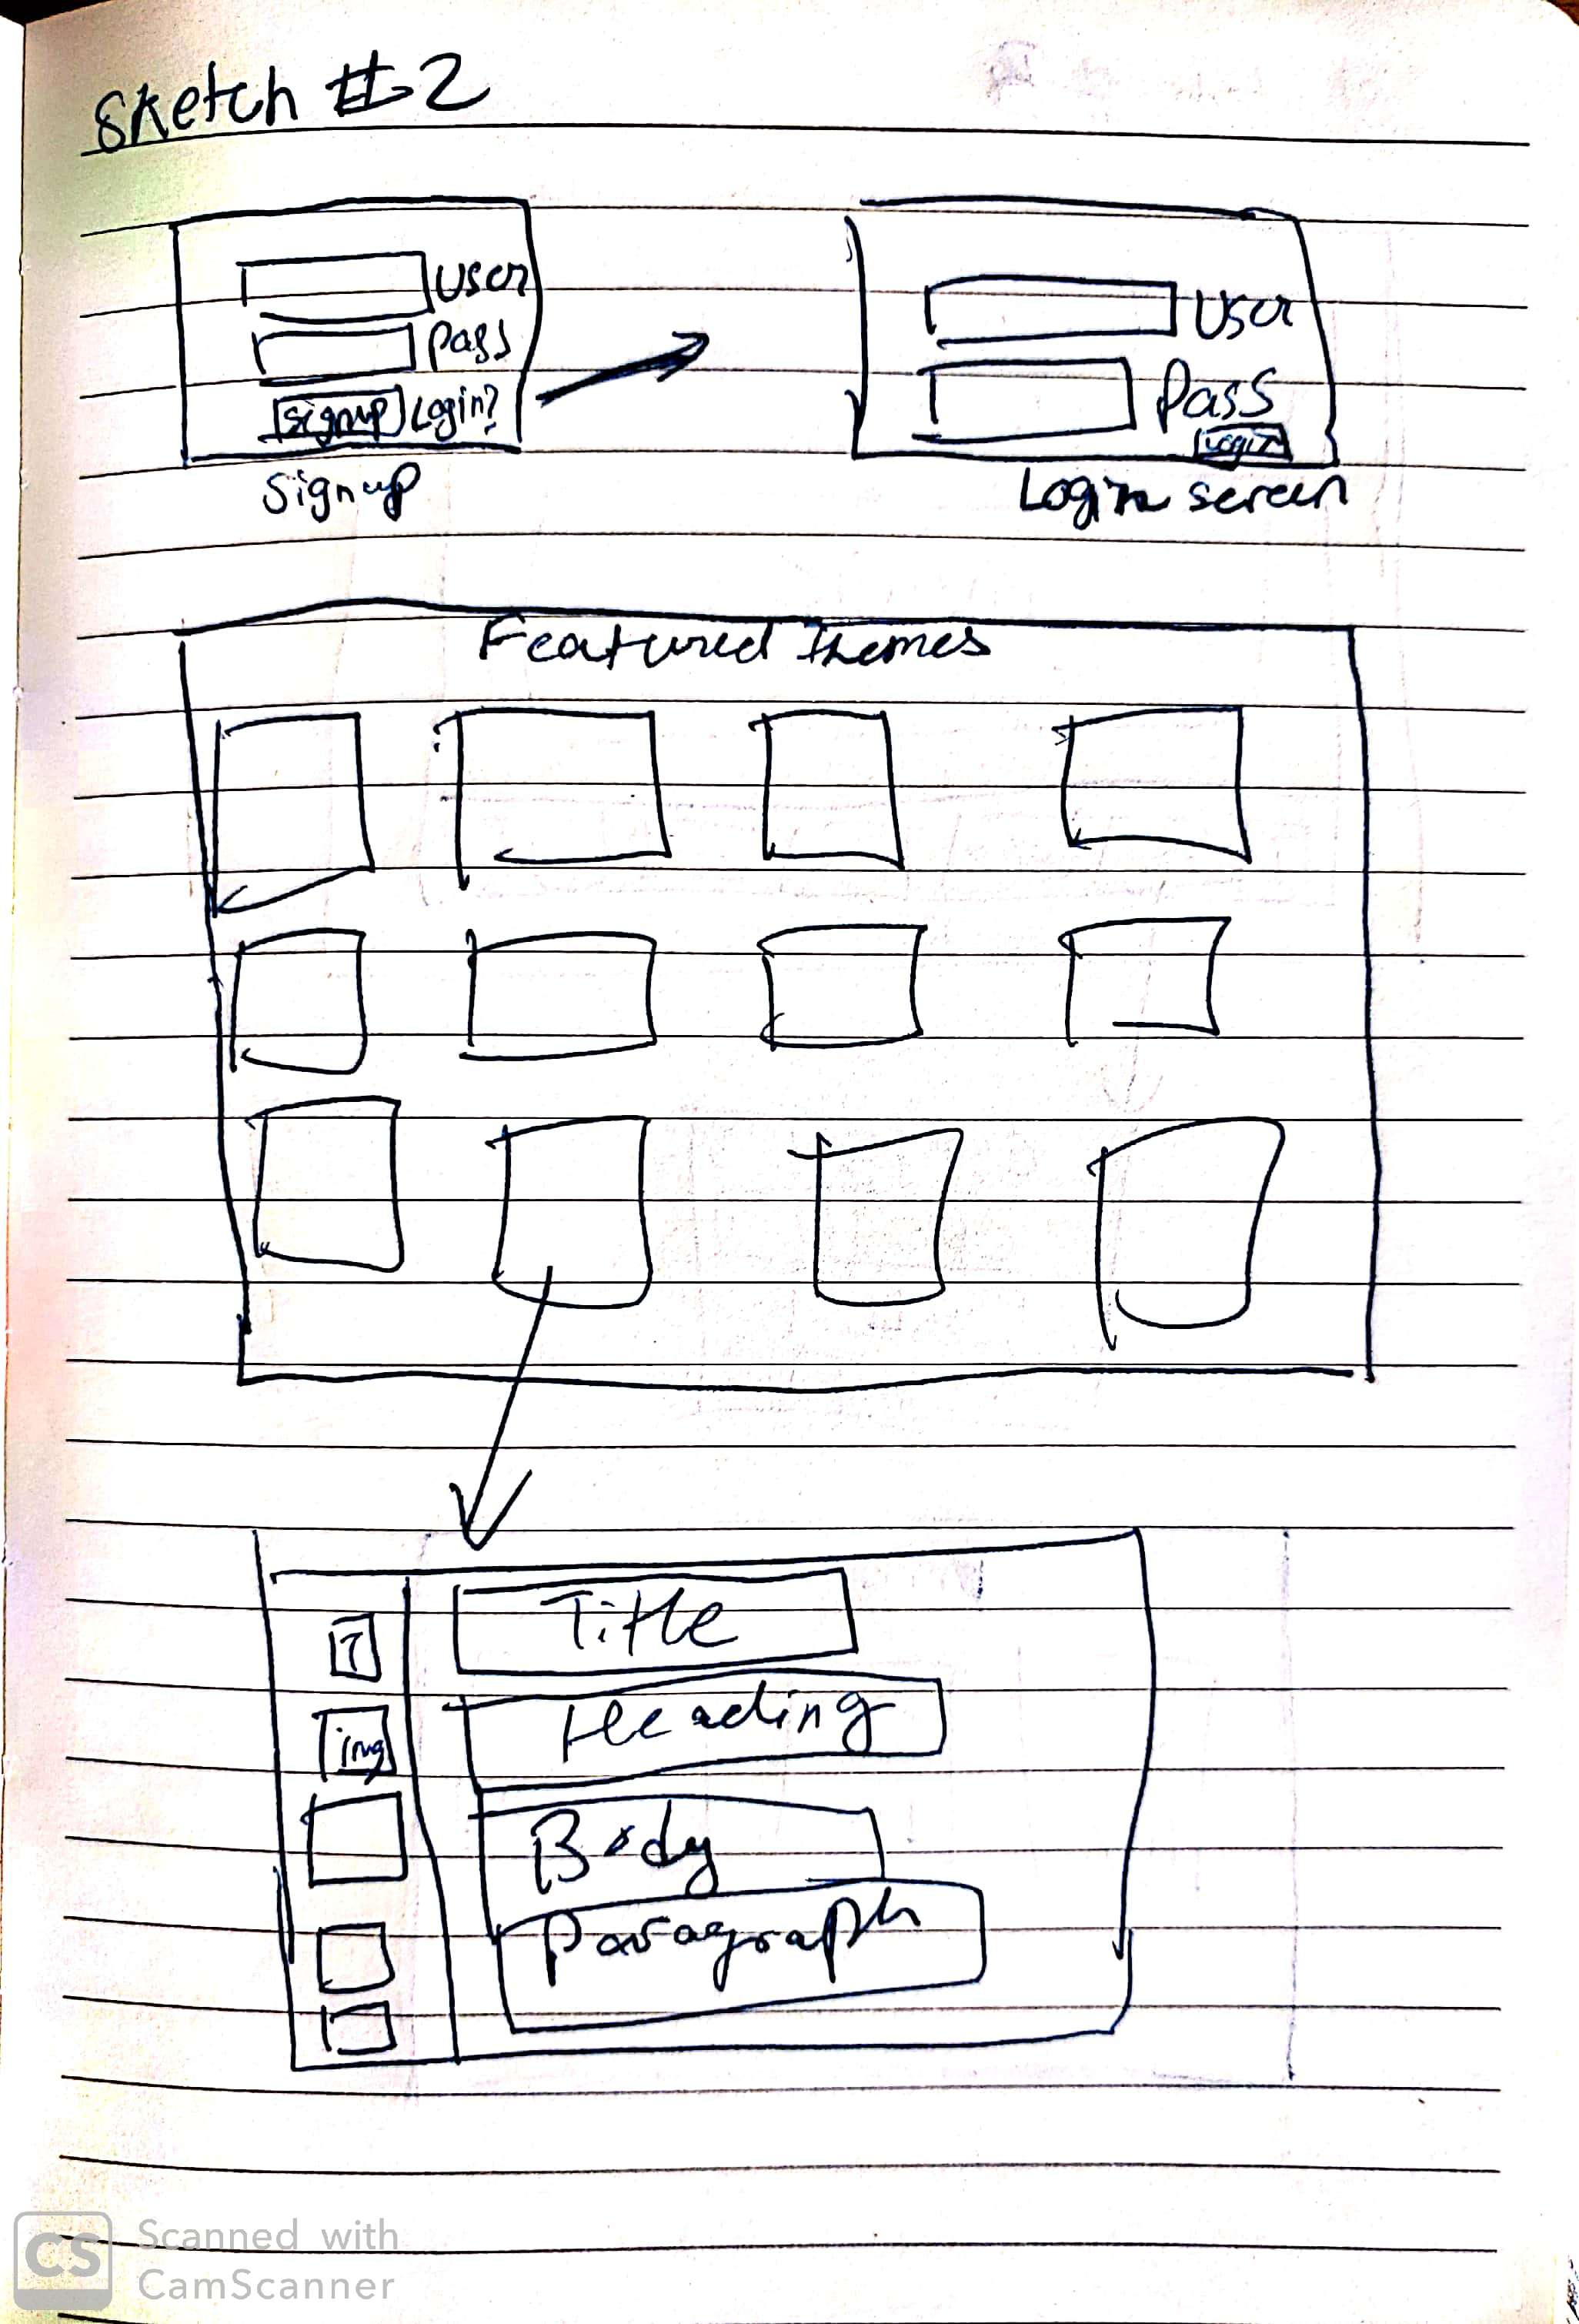 Sketch #2
User
Pass
Signup Login?
Signup
User
Pass
Login
Login screen
Featured Themes
T
Title
img
Heading
Body
Paragraph
CS
Scanned with
CamScanner